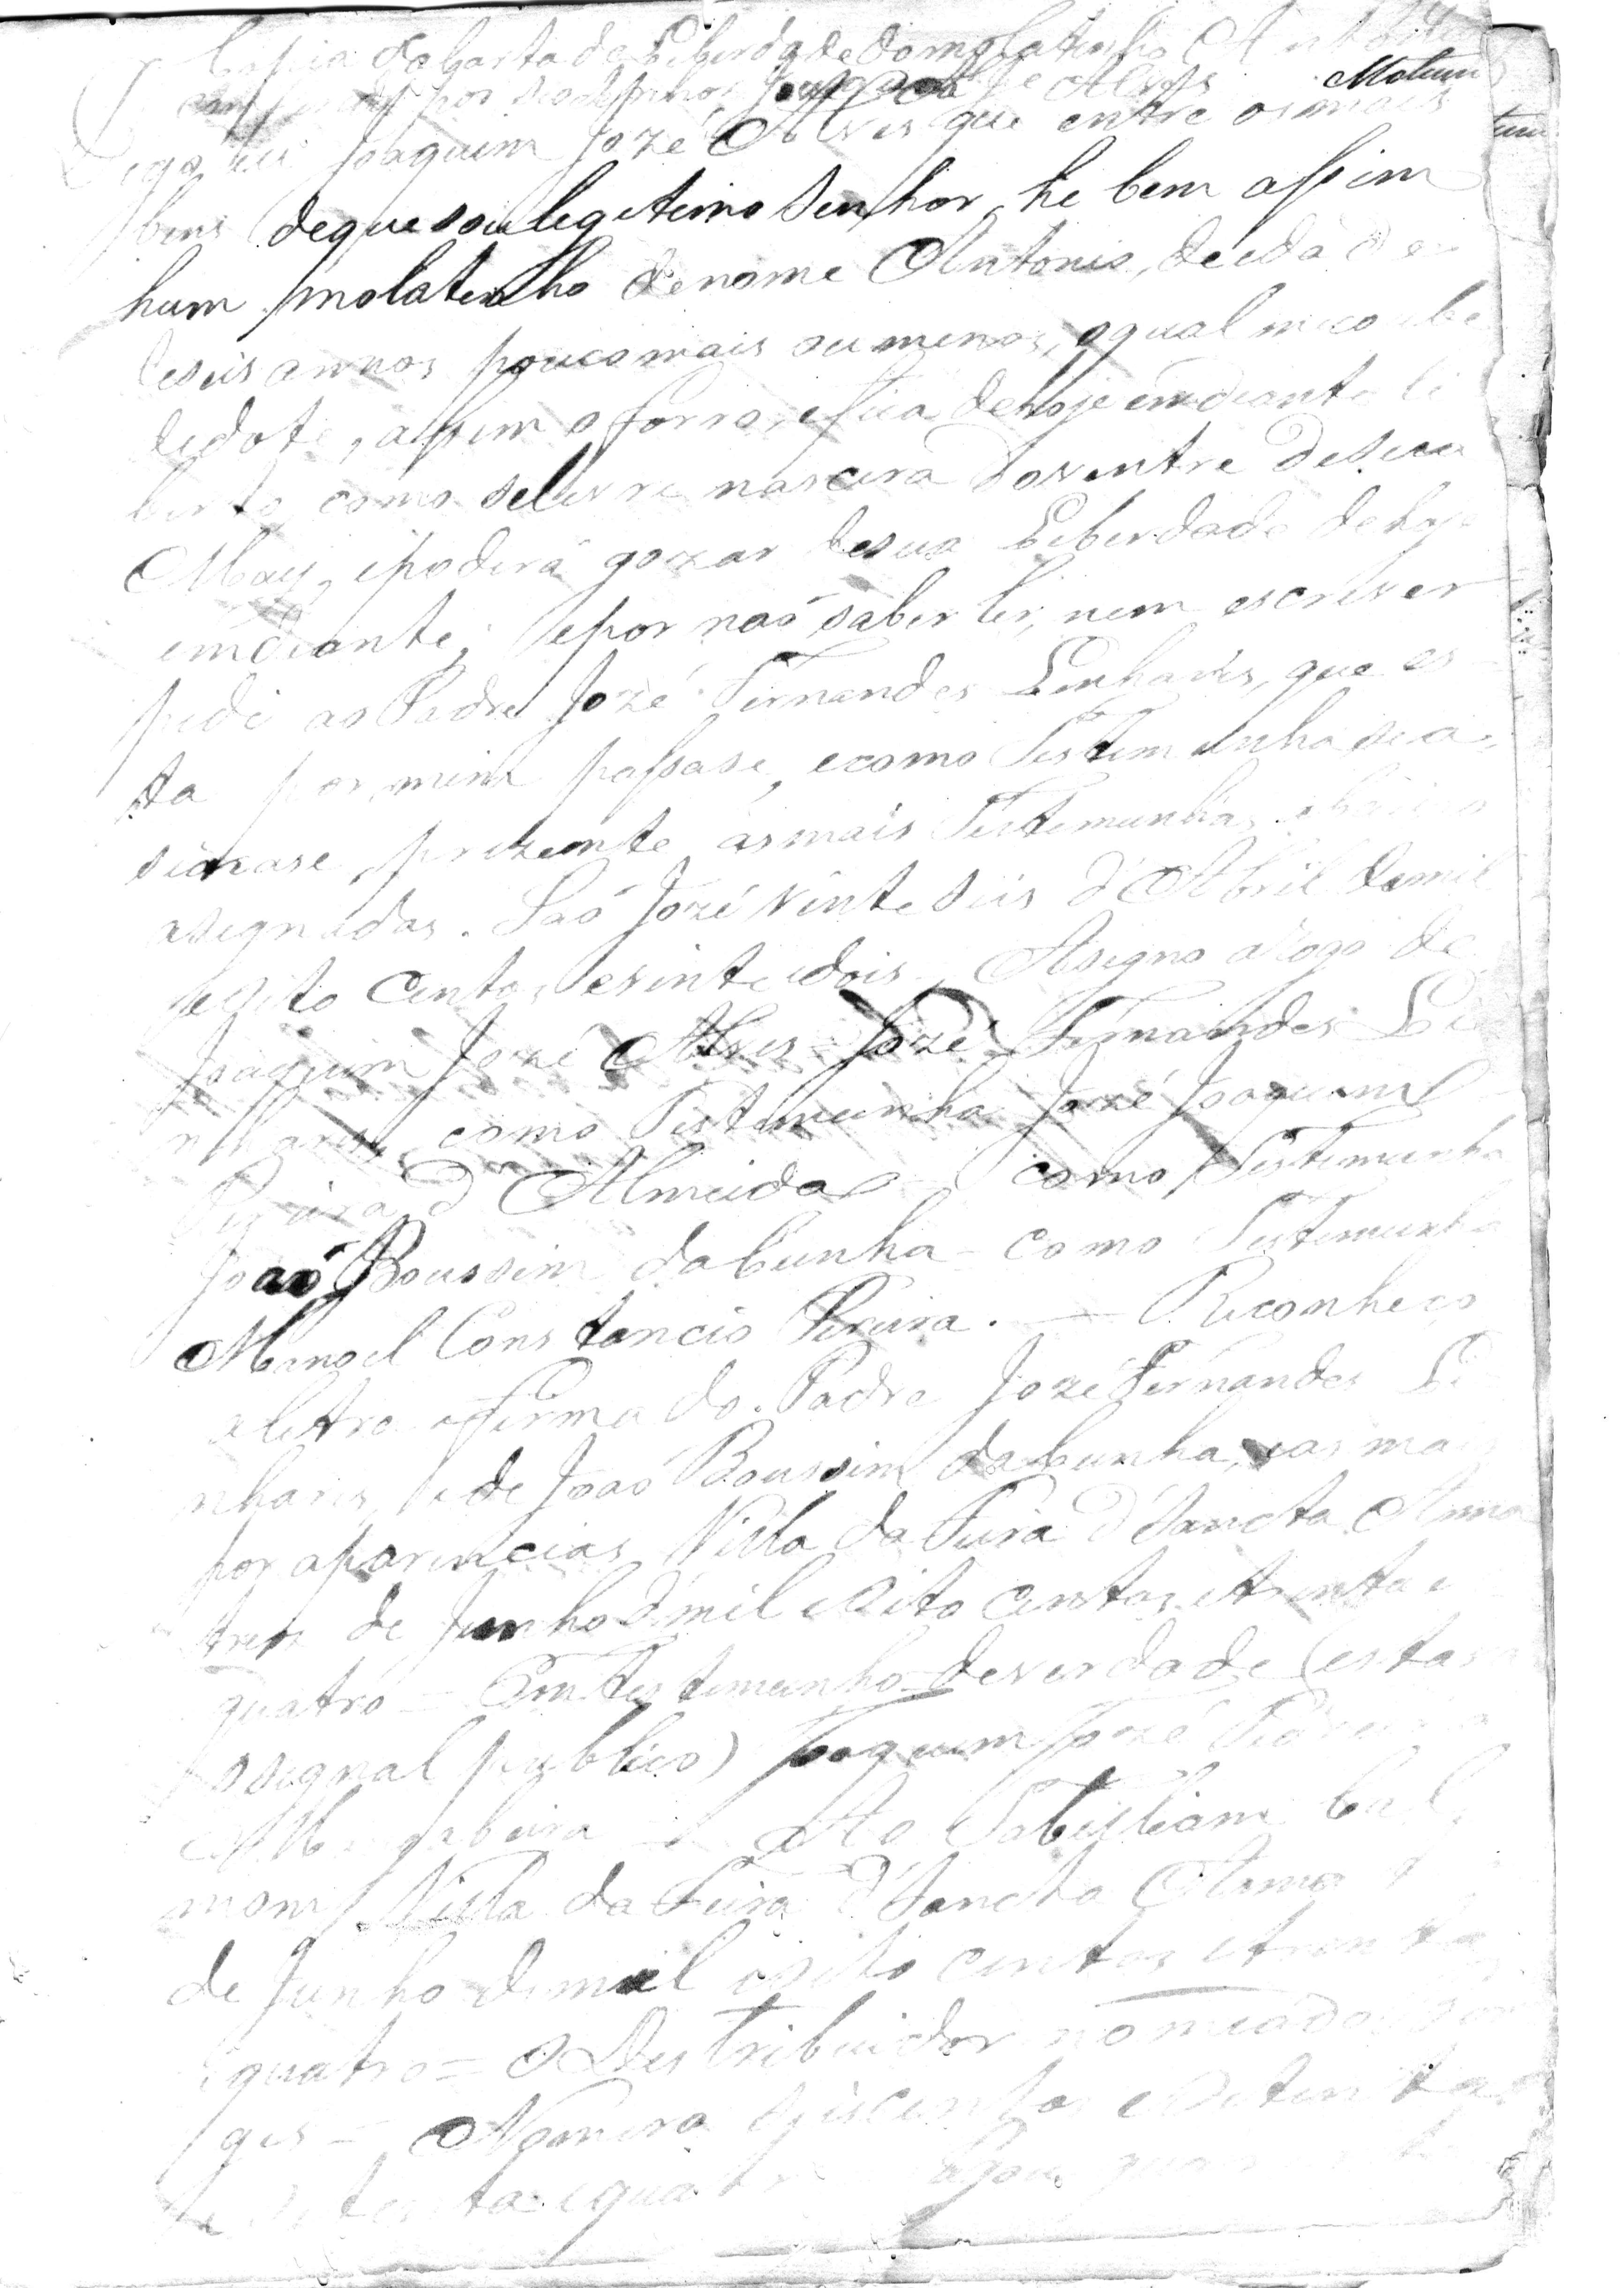 Copia da Carta de Liberdade do molatinho Antonio
por seo Senhor Joaquim Joze Alves
Molatin
Digo eu Joaquim Jozé Alves que entre os mais
bens deque sou legetimo Senhor, he bem assim
hum molatinho de nome Antonio, de idade
deseis annos pouco mais ou menos, o qual me coube
de dote, assim o forro, e fica de hoje em diante li
berto como se livre nascera do ventre de sua
May, epoderá gozar de sua Liberdade de hoje
em diante; e por naõ saber ler, nem escrever
pedi ao Padre Jozé Fernandes Linhares, que es
ta por mim passase, e como Testemunha se a
signase, prezente as mais Testemunhas abaixo
asignadas. Saõ Jozé vinte seis d'Abril de mil
e oito centos e vinte e dois. Asigno a rogo de
Joaquim Jozé Alves = Jozé Fernandes Li
nhares, como Testemunha Jozé Joaquim
d'Almeida = como Testemunha
Joaõ Boussim da Cunha = como Testemunha
Manoel Constancio Pereira. — Reconheço
a letra e firma do Padre Jozé Fernandes Li
nhares, e de Joaõ Boussim da Cunha, e as mais
por aparencias Villa da Feira d'Sancta Anna
tres de Junho d'mil e oito centos e trinta e
quatro = Em testemunho de verdade (estava
o signal publico) Joaquim Jozé
= Ao Tabelliam
Villa da Feira d'Sancta Anna
de Junho de mil e oito centos e trenta
e quatro = O Destribuidor nomiado
ges = Numero seis centos e setenta
e setenta e quatro